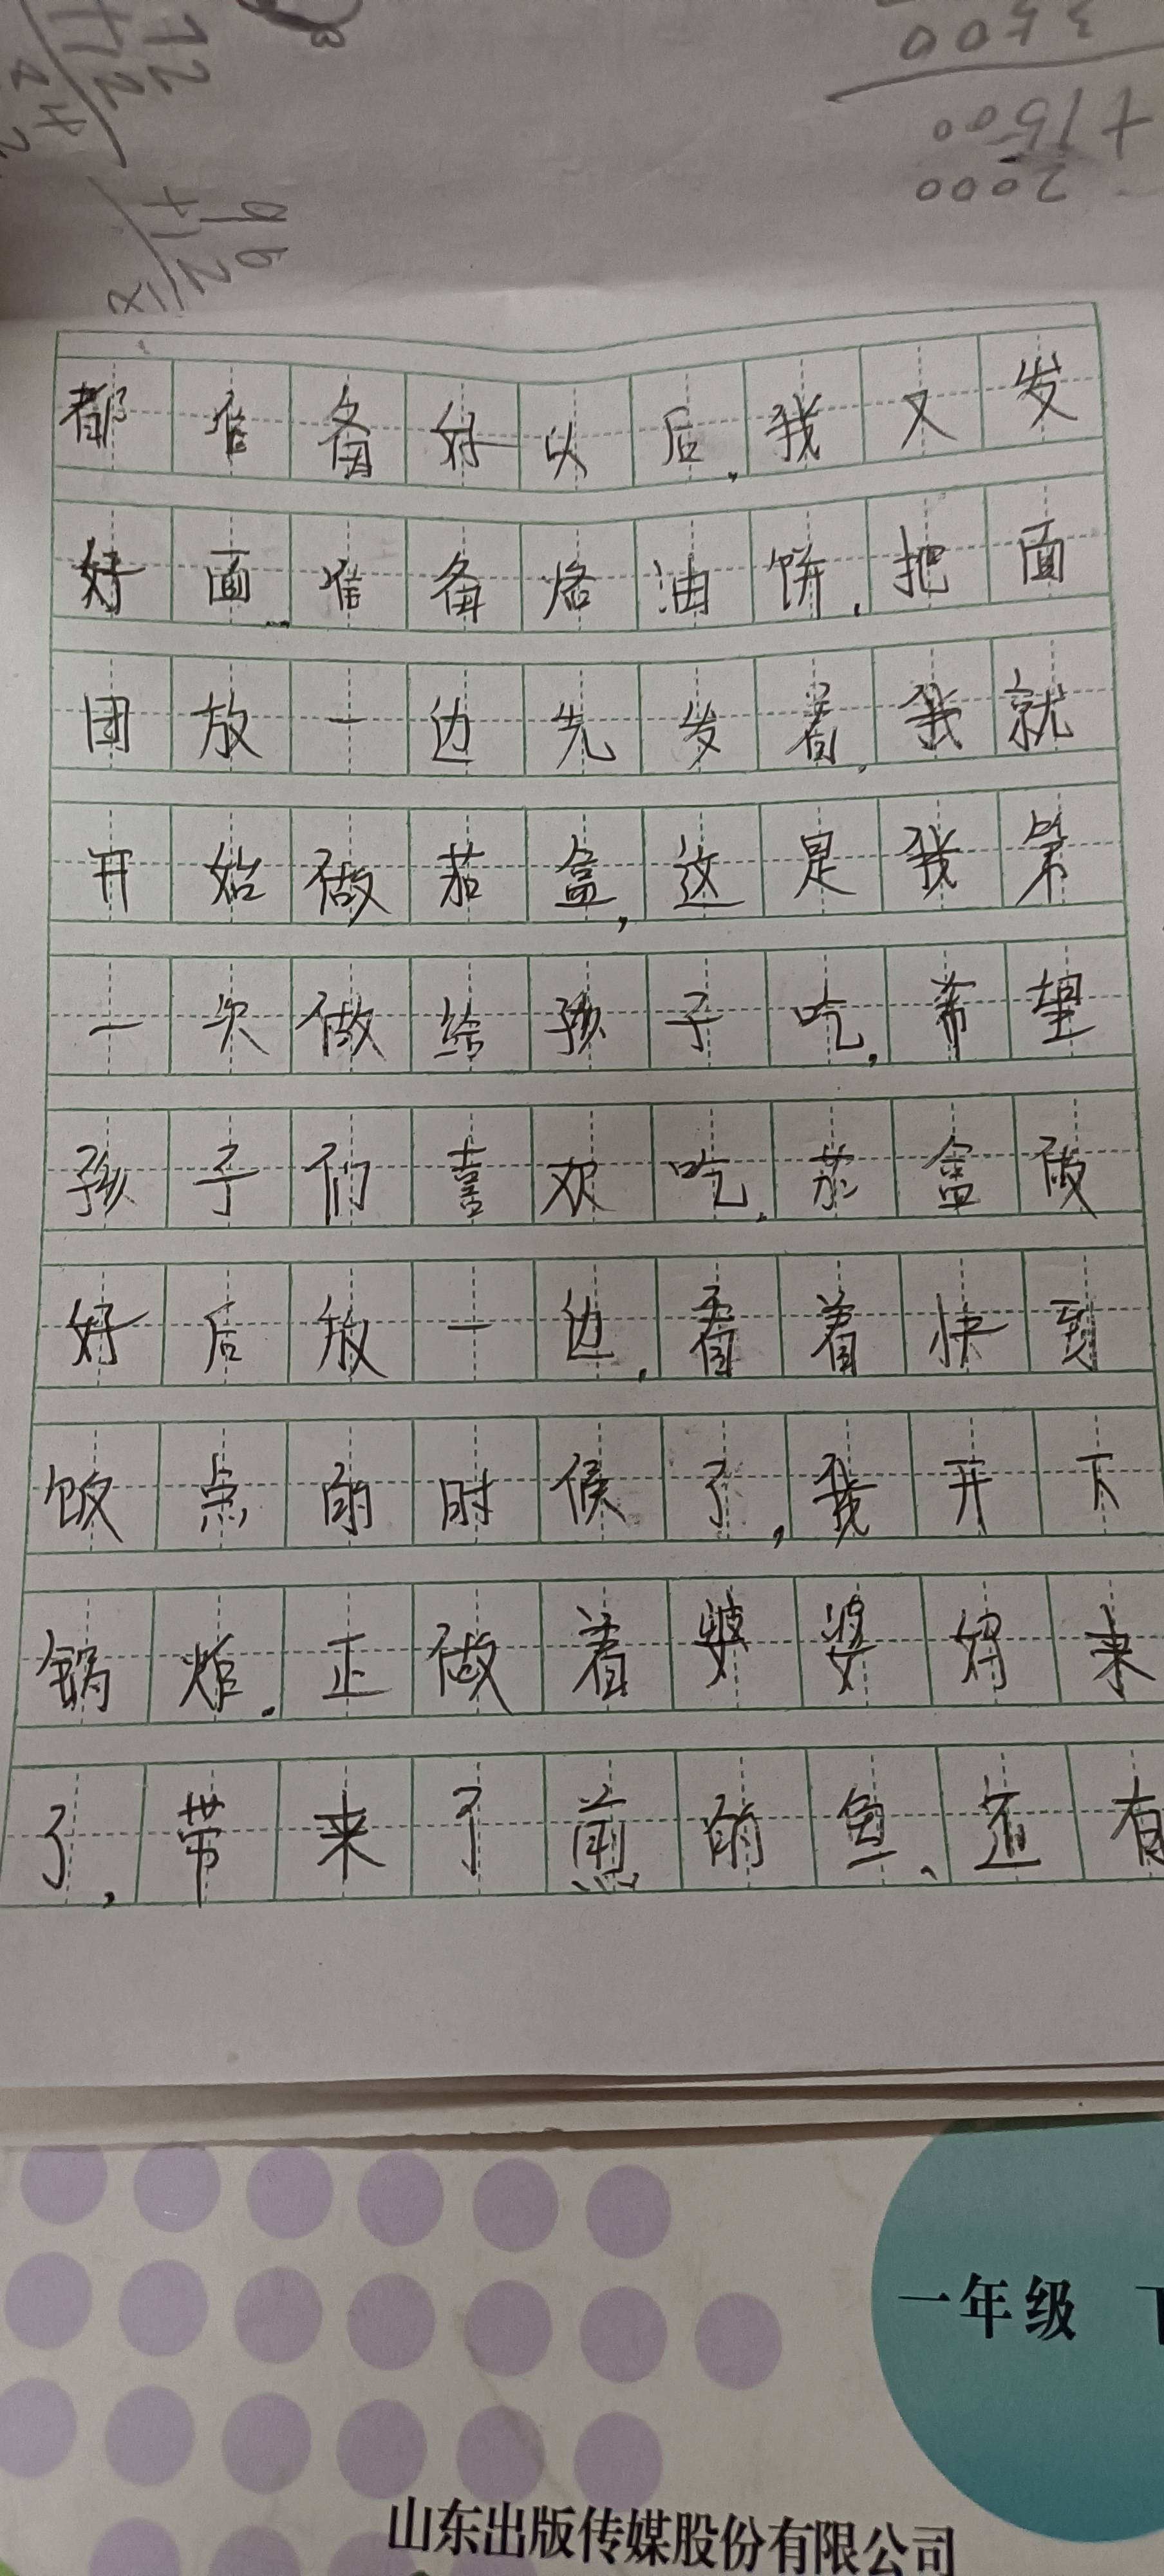 3500
+1500
2000
72
+12
96
+12
都准备好以后,我又发
好面,准备烙油饼,把面
团放一边先发着,我就
开始做茄盒,这是我第
一次做给孩子吃,希望
孩子们喜欢吃,茄盒做
好后放一边,看着快到
饭点的时候了,我开下
锅炸.正做着婆婆妈来
了,带来了煎的鱼、还有
一年级
山东出版传媒股份有限公司